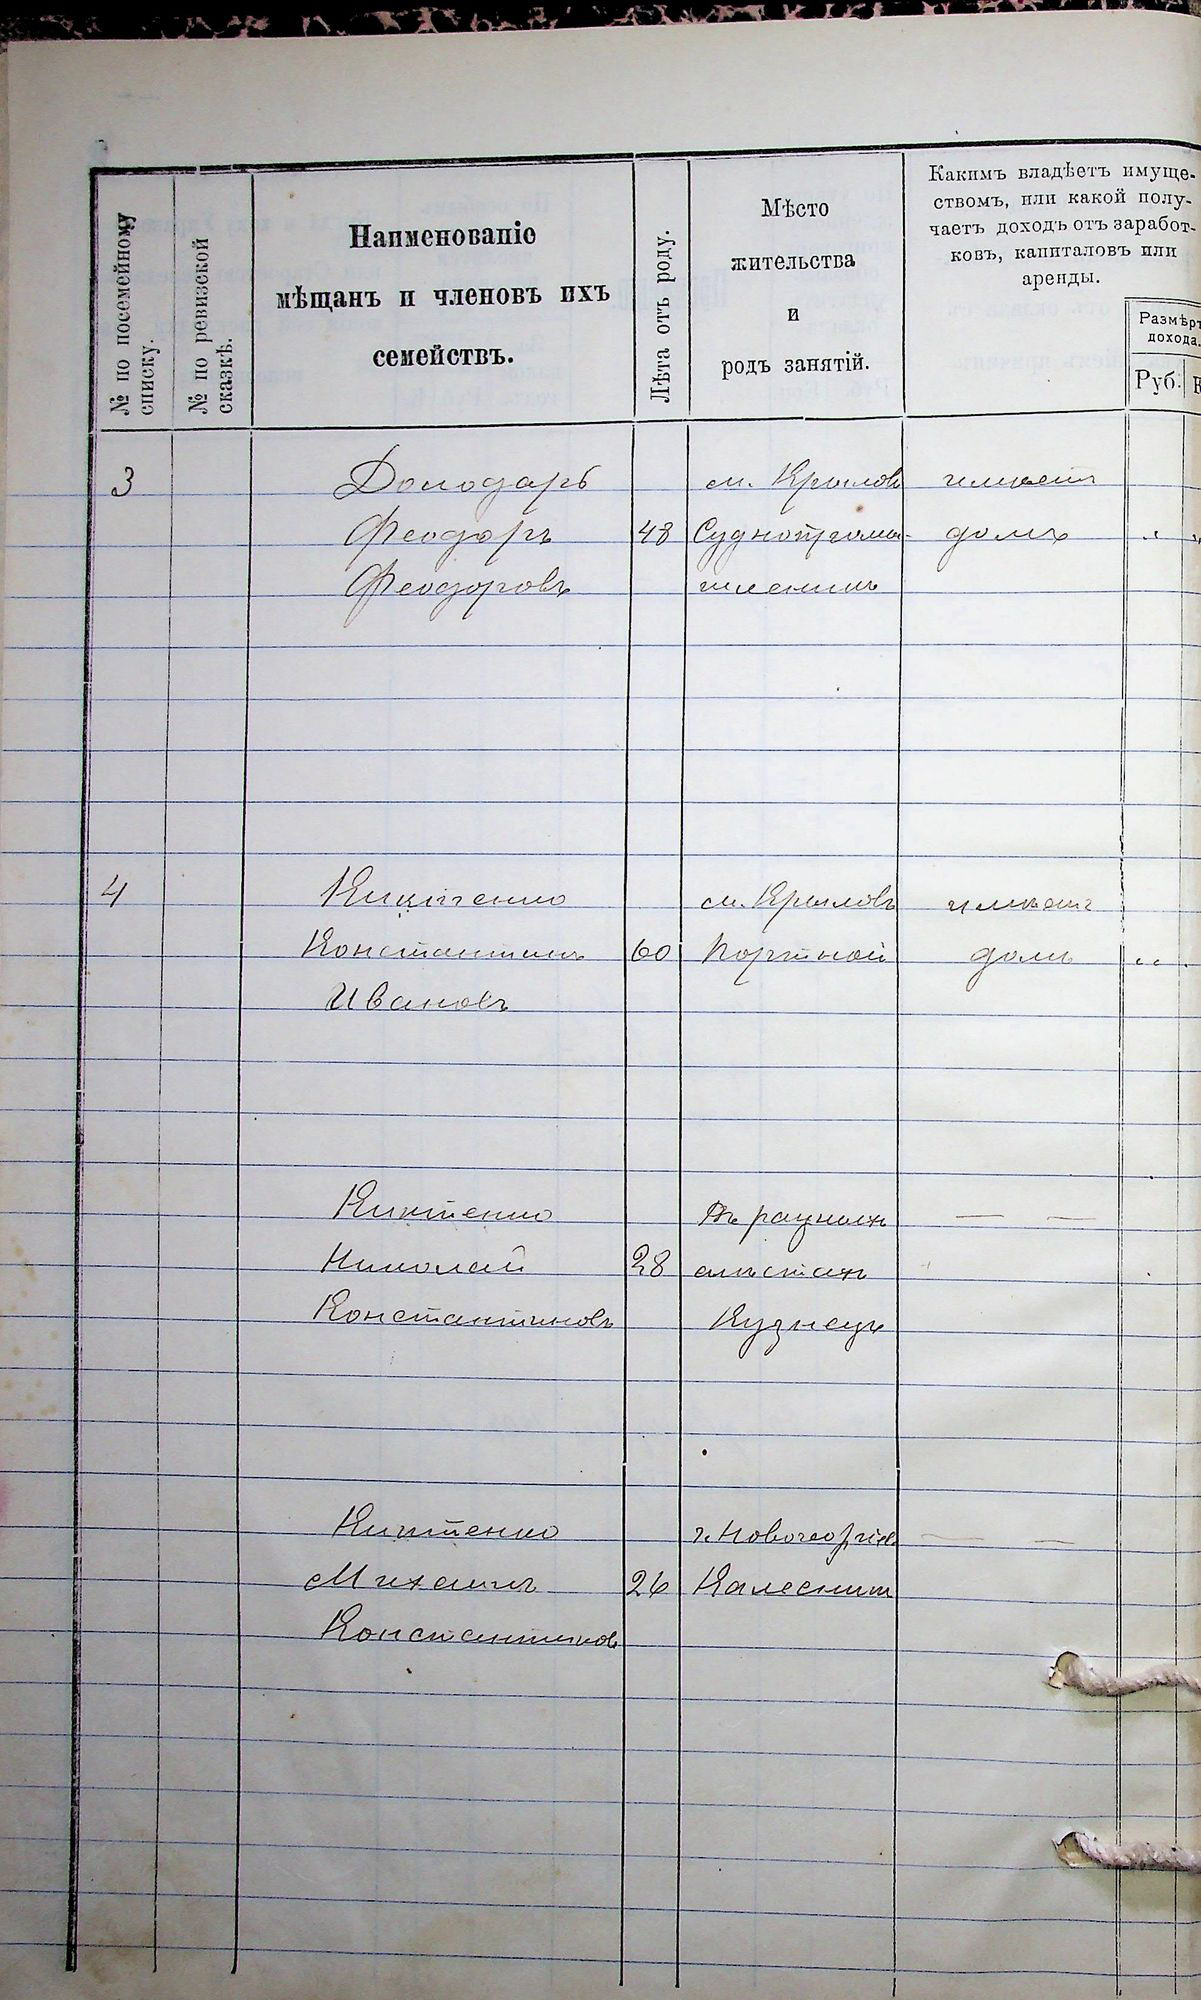 № по посемейному
списку.
№ по ревизской
сказкѣ.
Наименованіе
мѣщанъ и членовъ ихъ
семействъ.
Лѣта отъ роду.
Мѣсто
жительства
и
родъ занятій.
Какимъ владѣетъ имуще-
ствомъ, или какой полу-
чаетъ доходъ отъ заработ-
ковъ, капиталовъ или
аренды.
Размѣръ
дохода.
Руб.
3 м. Крыловъ имѣетъ
Феодоръ 48 домъ
Феодоровъ
4 м. Крыловъ имѣетъ
Константинъ 60 Портной домъ
Ивановъ
Киктенко Въ разныхъ — —
Николай 28 мѣстахъ
Константиновъ Кузнецъ
Киктенко г. Новогеоргіев — —
Михаилъ 26 Колесник
Константинов